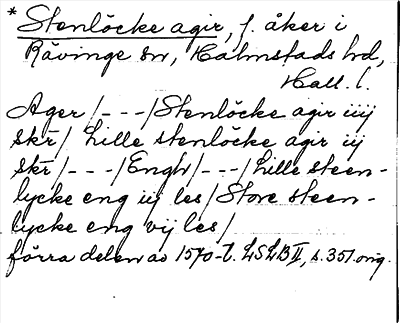 * Stenlöcke agir, f. åker i
Rävinge sn, Halmstads hd,
Hall. l.
Ager /---/ Stenlöcke agir iiij
skr̄ / Lille stenlöcke agir iij
skr̄ /---/ Engh /---/ Lille steen-
lycke eng iij les / Store steen-
lycke eng vij les /
förra delen av 1570-t. LSLB II, s. 351. orig.